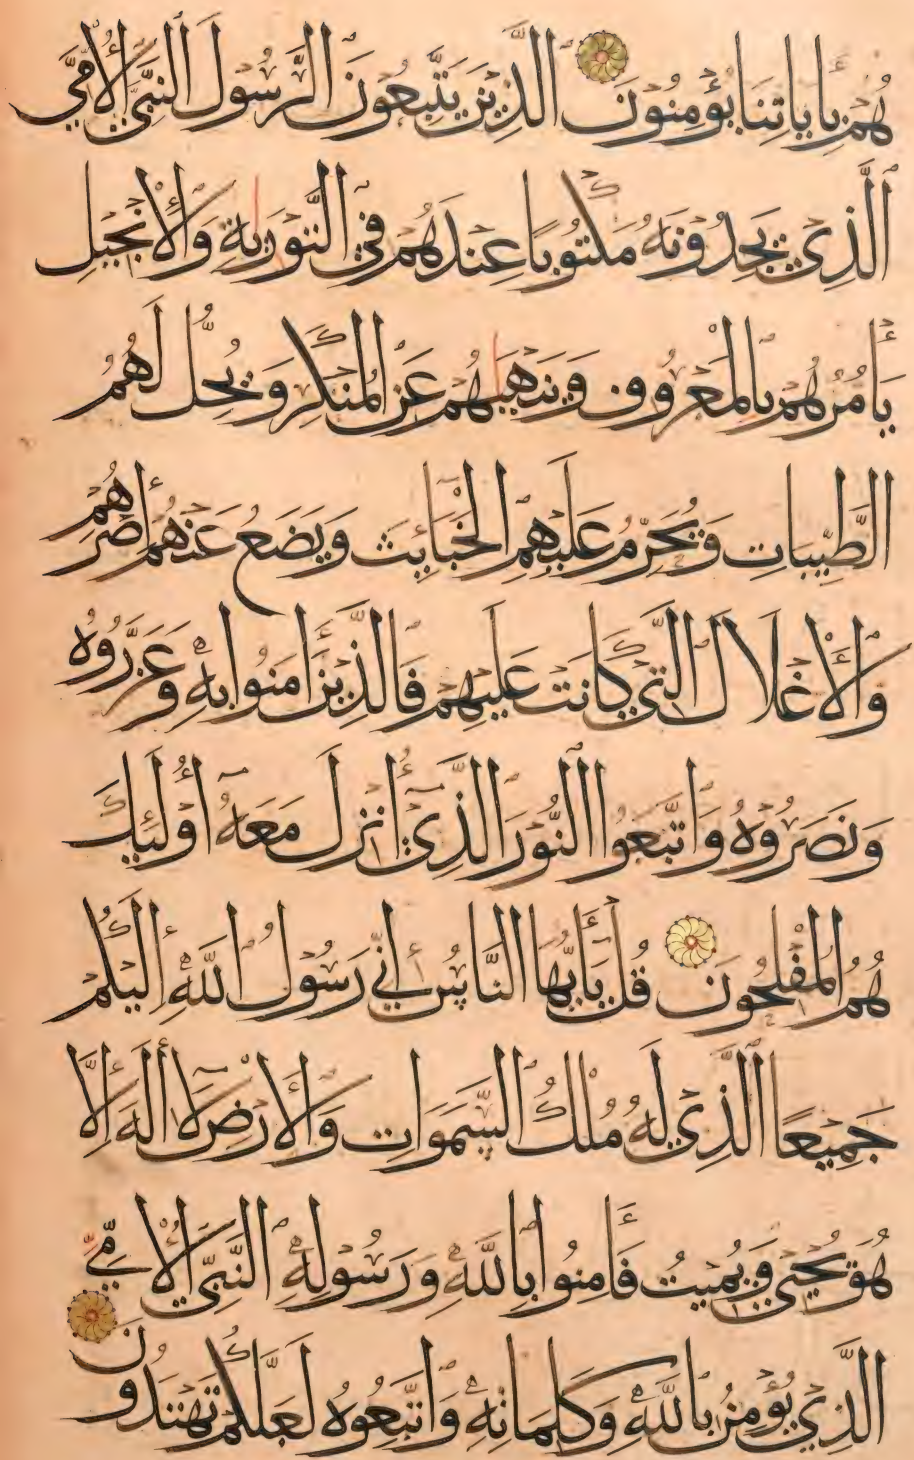 هُمْ بِآيَاتِنَا يُؤْمِنُونَ الَّذِينَ يَتَّبِعُونَ الرَّسُولَ النَّبِيَّ الْأُمِّيَّ
الَّذِي يَجِدُونَهُ مَكْتُوبًا عِنْدَهُمْ فِي التَّوْرَيةِ وَالْإِنْجِيلِ
يَأْمُرُهُمْ بِالْمَعْرُوفِ وَيَنْهَيهُمْ عَنِ الْمُنْكَرِ وَيُحِلُّ لَهُمُ
الطَّيِّبَاتِ وَيُحَرِّمُ عَلَيْهِمُ الْخَبَائِثَ وَيَضَعُ عَنْهُمْ إِصْرَهُمْ
وَالْأَغْلَالَ الَّتِي كَانَتْ عَلَيْهِمْ فَالَّذِينَ آمَنُوا بِهِ وَعَزَّرُوهُ
وَنَصَرُوهُ وَاتَّبَعُوا النُّورَ الَّذِي أُنْزِلَ مَعَهُ أُولَئِكَ
هُمُ الْمُفْلِحُونَ قُلْ يَا أَيُّهَا النَّاسُ إِنِّي رَسُولُ اللَّهِ إِلَيْكُمْ
جَمِيعًا الَّذِي لَهُ مُلْكُ السَّمَوَاتِ وَالْأَرْضِ لَا إِلَهَ إِلَّا
هُوَ يُحْيِي وَيُمِيتُ فَآمِنُوا بِاللَّهِ وَرَسُولِهِ النَّبِيِّ الْأُمِّيِّ
الَّذِي يُؤْمِنُ بِاللَّهِ وَكَلِمَاتِهِ وَاتَّبِعُوهُ لَعَلَّكُمْ تَهْتَدُونَ